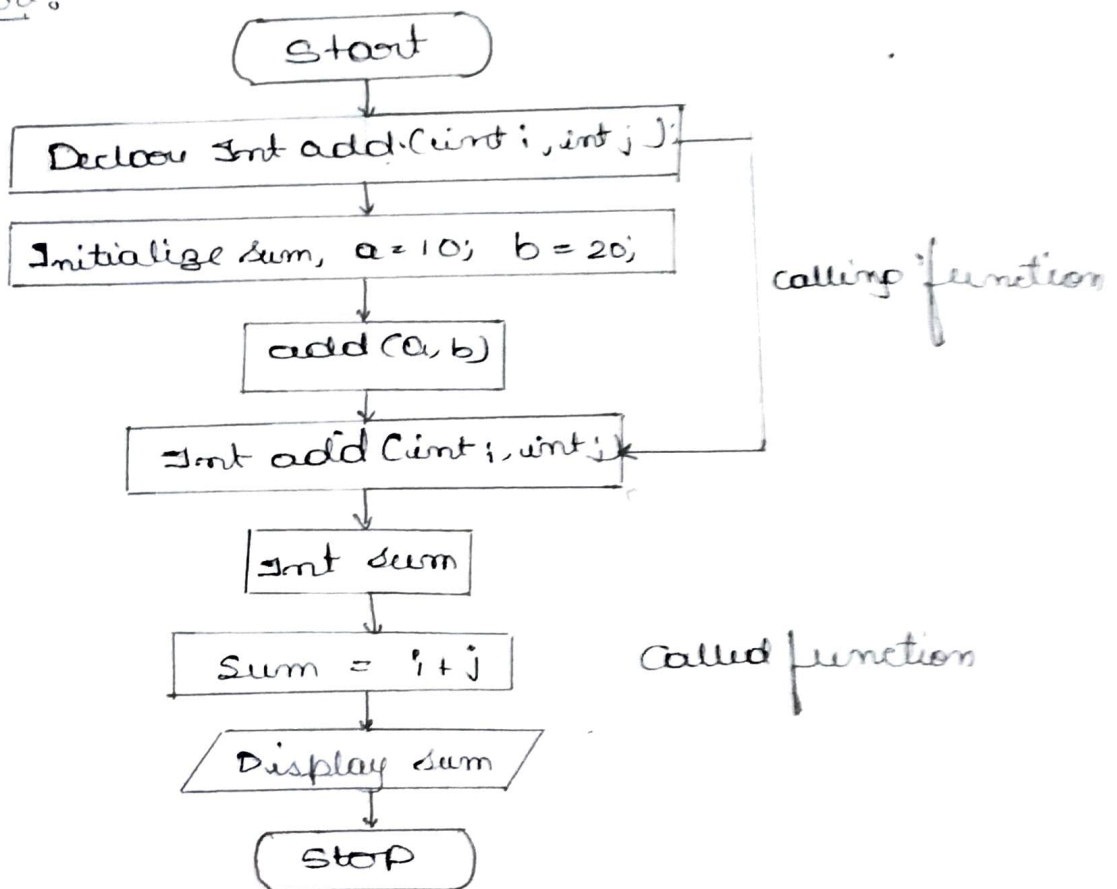 Start
Declare Int add (int i, int j);
Initialize sum, a = 10; b = 20;
calling function
add (a, b)
Int add (int i, int j)
Int sum
Sum = i + j
Called function
Display sum
Stop